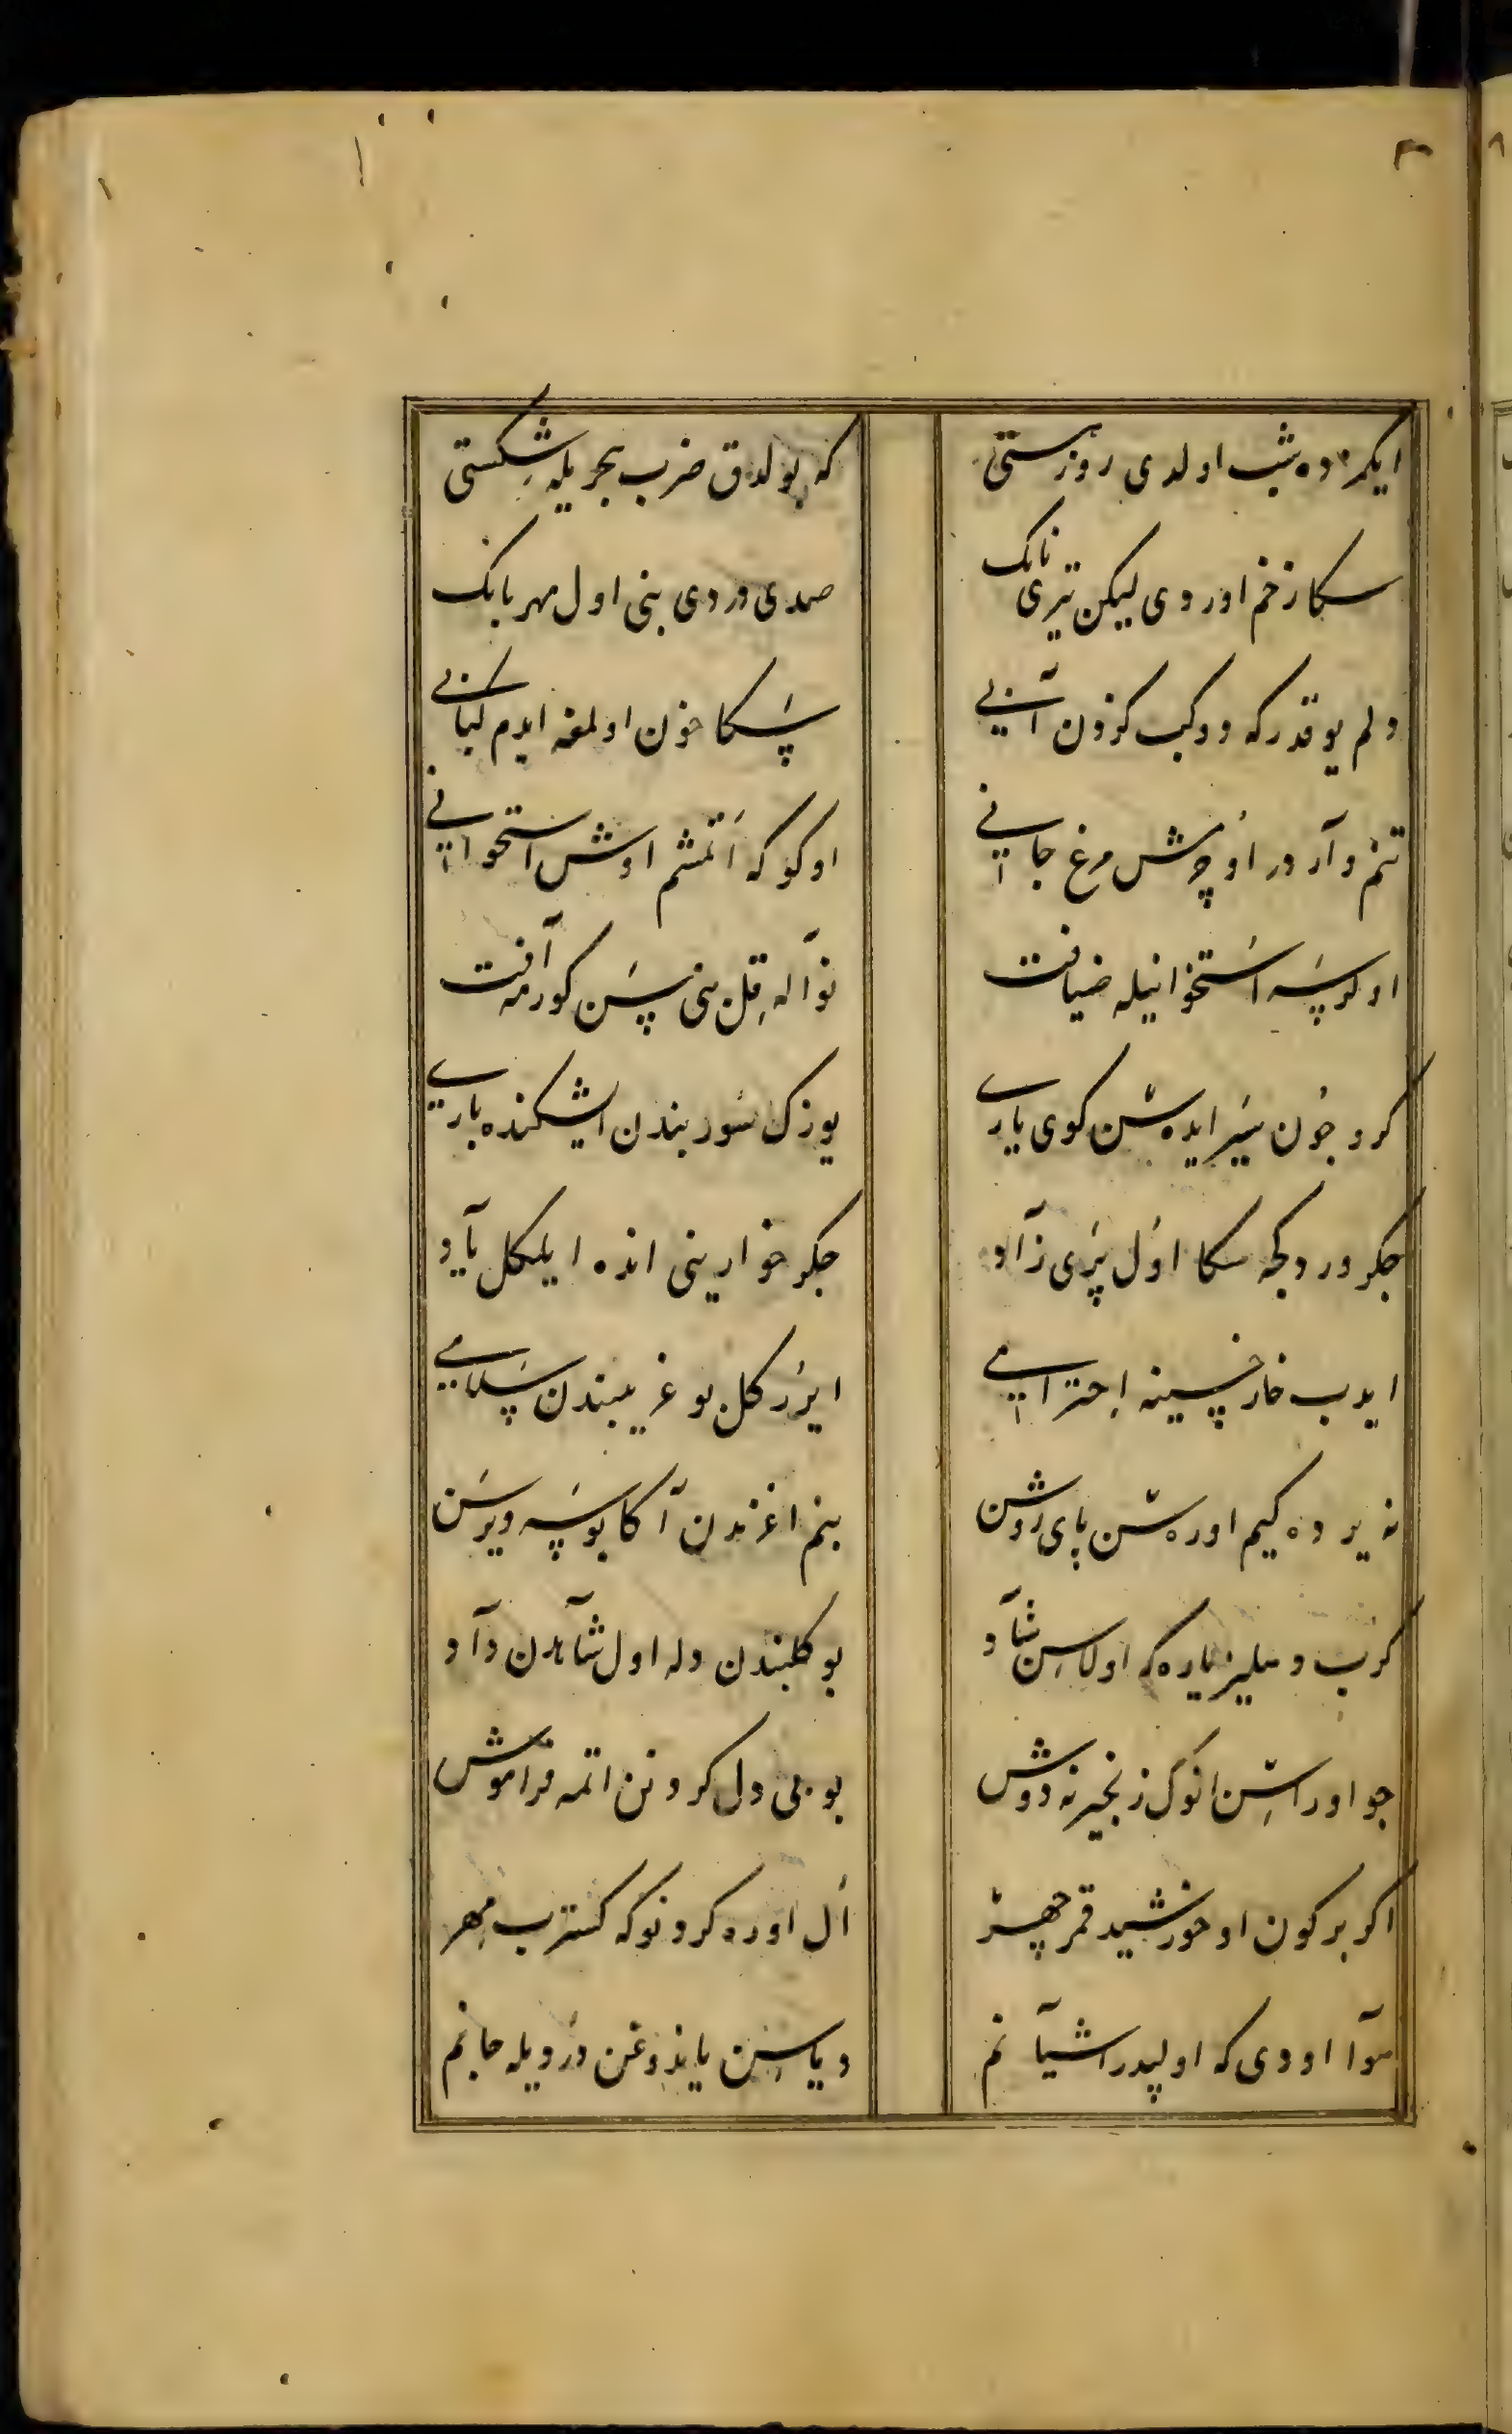 ایکمزده شب اولدی روز هستی
که بولدق ضرب هجریله شکستی
سکا زخم اوردی لیکن تیری نانک
صمدی دردی بنی اول مهر بانک
ولم یوقدر که دوکب کزون آنی
سکا خون اولمغه ایدم لیانی
تنم وآردر اوچمش مرغ جانی
اوکو که اتمشم اوش استخوانی
اولرسه استخوانیله ضیافت
نوآله قلن بنی سن کورمه آفت
کرو چون سیر ایده‌سن کوی یاری
یوزک سور بندن ایشکنده باری
جکر وردکجه سکا اول پری زآد
جکر خوارینی انده ایلیکل یآد
ایدب خار خسینه احترامی
ایرر کل بو غریبندن سلامی
نه یرده کیم اوره‌سن پای روشن
بنم اغزندن آکا بوسه ویرسن
کرب دهلیز یاره که اولاسن شآد
بو کلبندن دله اول شآهدن دآد
چو اوراسن انوک زنجیرنه دوش
بو بی دل کردنن اتمه فراموش
اکر بر کون او خورشید قمر چهر
ال اوره کردنوکه کسترب مهر
سوآ اودی که اولیدر اشیآنم
دیاسن یاندوغن دردیله جانم